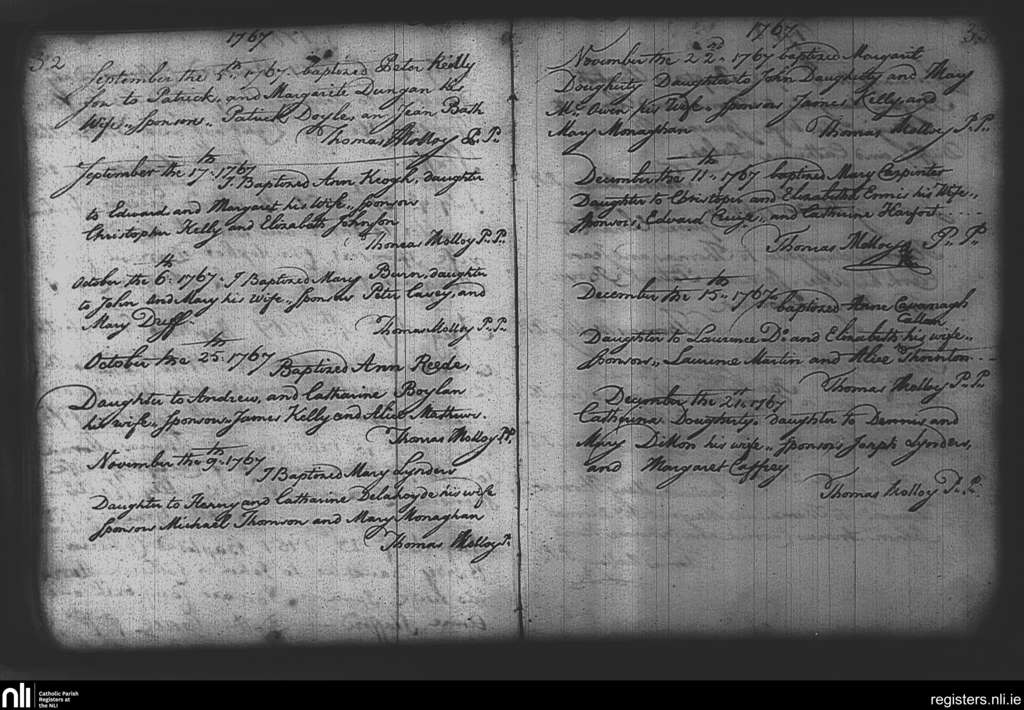 32
1767
September the 5th 1767. baptized Peter Keilly
Son to Patrick, and Margarete Dungan his
Wife,, Sponsors,, Patrick Doyle, an Jean Bath
Thomas Molloy P. P.
September the 17th 1767
I Baptized Ann Keogh, daughter
to Edward and Margaret his Wife,, Sponsors
Christopher Kelly and Elizabeth Johnson
Thomas Molloy P. P.
October the 6th 1767. I Baptized Mary Burn, daughter
to John and Mary his Wife,, Sponsors Peter Casey, and
Mary Duff.
Thomas Molloy P. P.
October the 25th 1767
Baptized Ann Reede,
Daughter to Andrew, and Catharine Boylan
his wife,, Sponsors James Kelly and Alice Mathews.
Thomas Molloy P.P.
November the 9th 1767
I Baptized Mary Lynders
Daughter to Henry and Catharine Delahoyde his wife
Sponsors Michael Thomson and Mary Monaghan
Thomas Molloy P.
1767
November the 22nd 1767 baptized Margarit
Dougherty Daughter to John Daugherty and Mary
Mc Owen his Wife. Sponsors James Kelly, and
Mary Monaghan
Thomas Molloy P. P.
December the 11th 1767 baptized Mary Carpinter
Daughter to Christoper and Elizabeth Ennis his Wife,,
Sponsors, Edward and Catherine Harford
Thomas Molloy P. P.
December the 15th 1767
baptized Anne Cavanagh
Daughter to Laurence Do and Elizabeth his wife,,
Callan
Sponsors,, Laurence Martin and Alice Thornton
Thomas Molloy P. P.
December the 21. 1767
Catherina Dougherty. daughter to Dennis and
Mary Dillon his wife,, Sponsors Joseph Lynders,
and Margaret Caffrey
Thomas Molloy P. P.
nli
Catholic Parish
Registers at
the NLI
registers.nli.ie